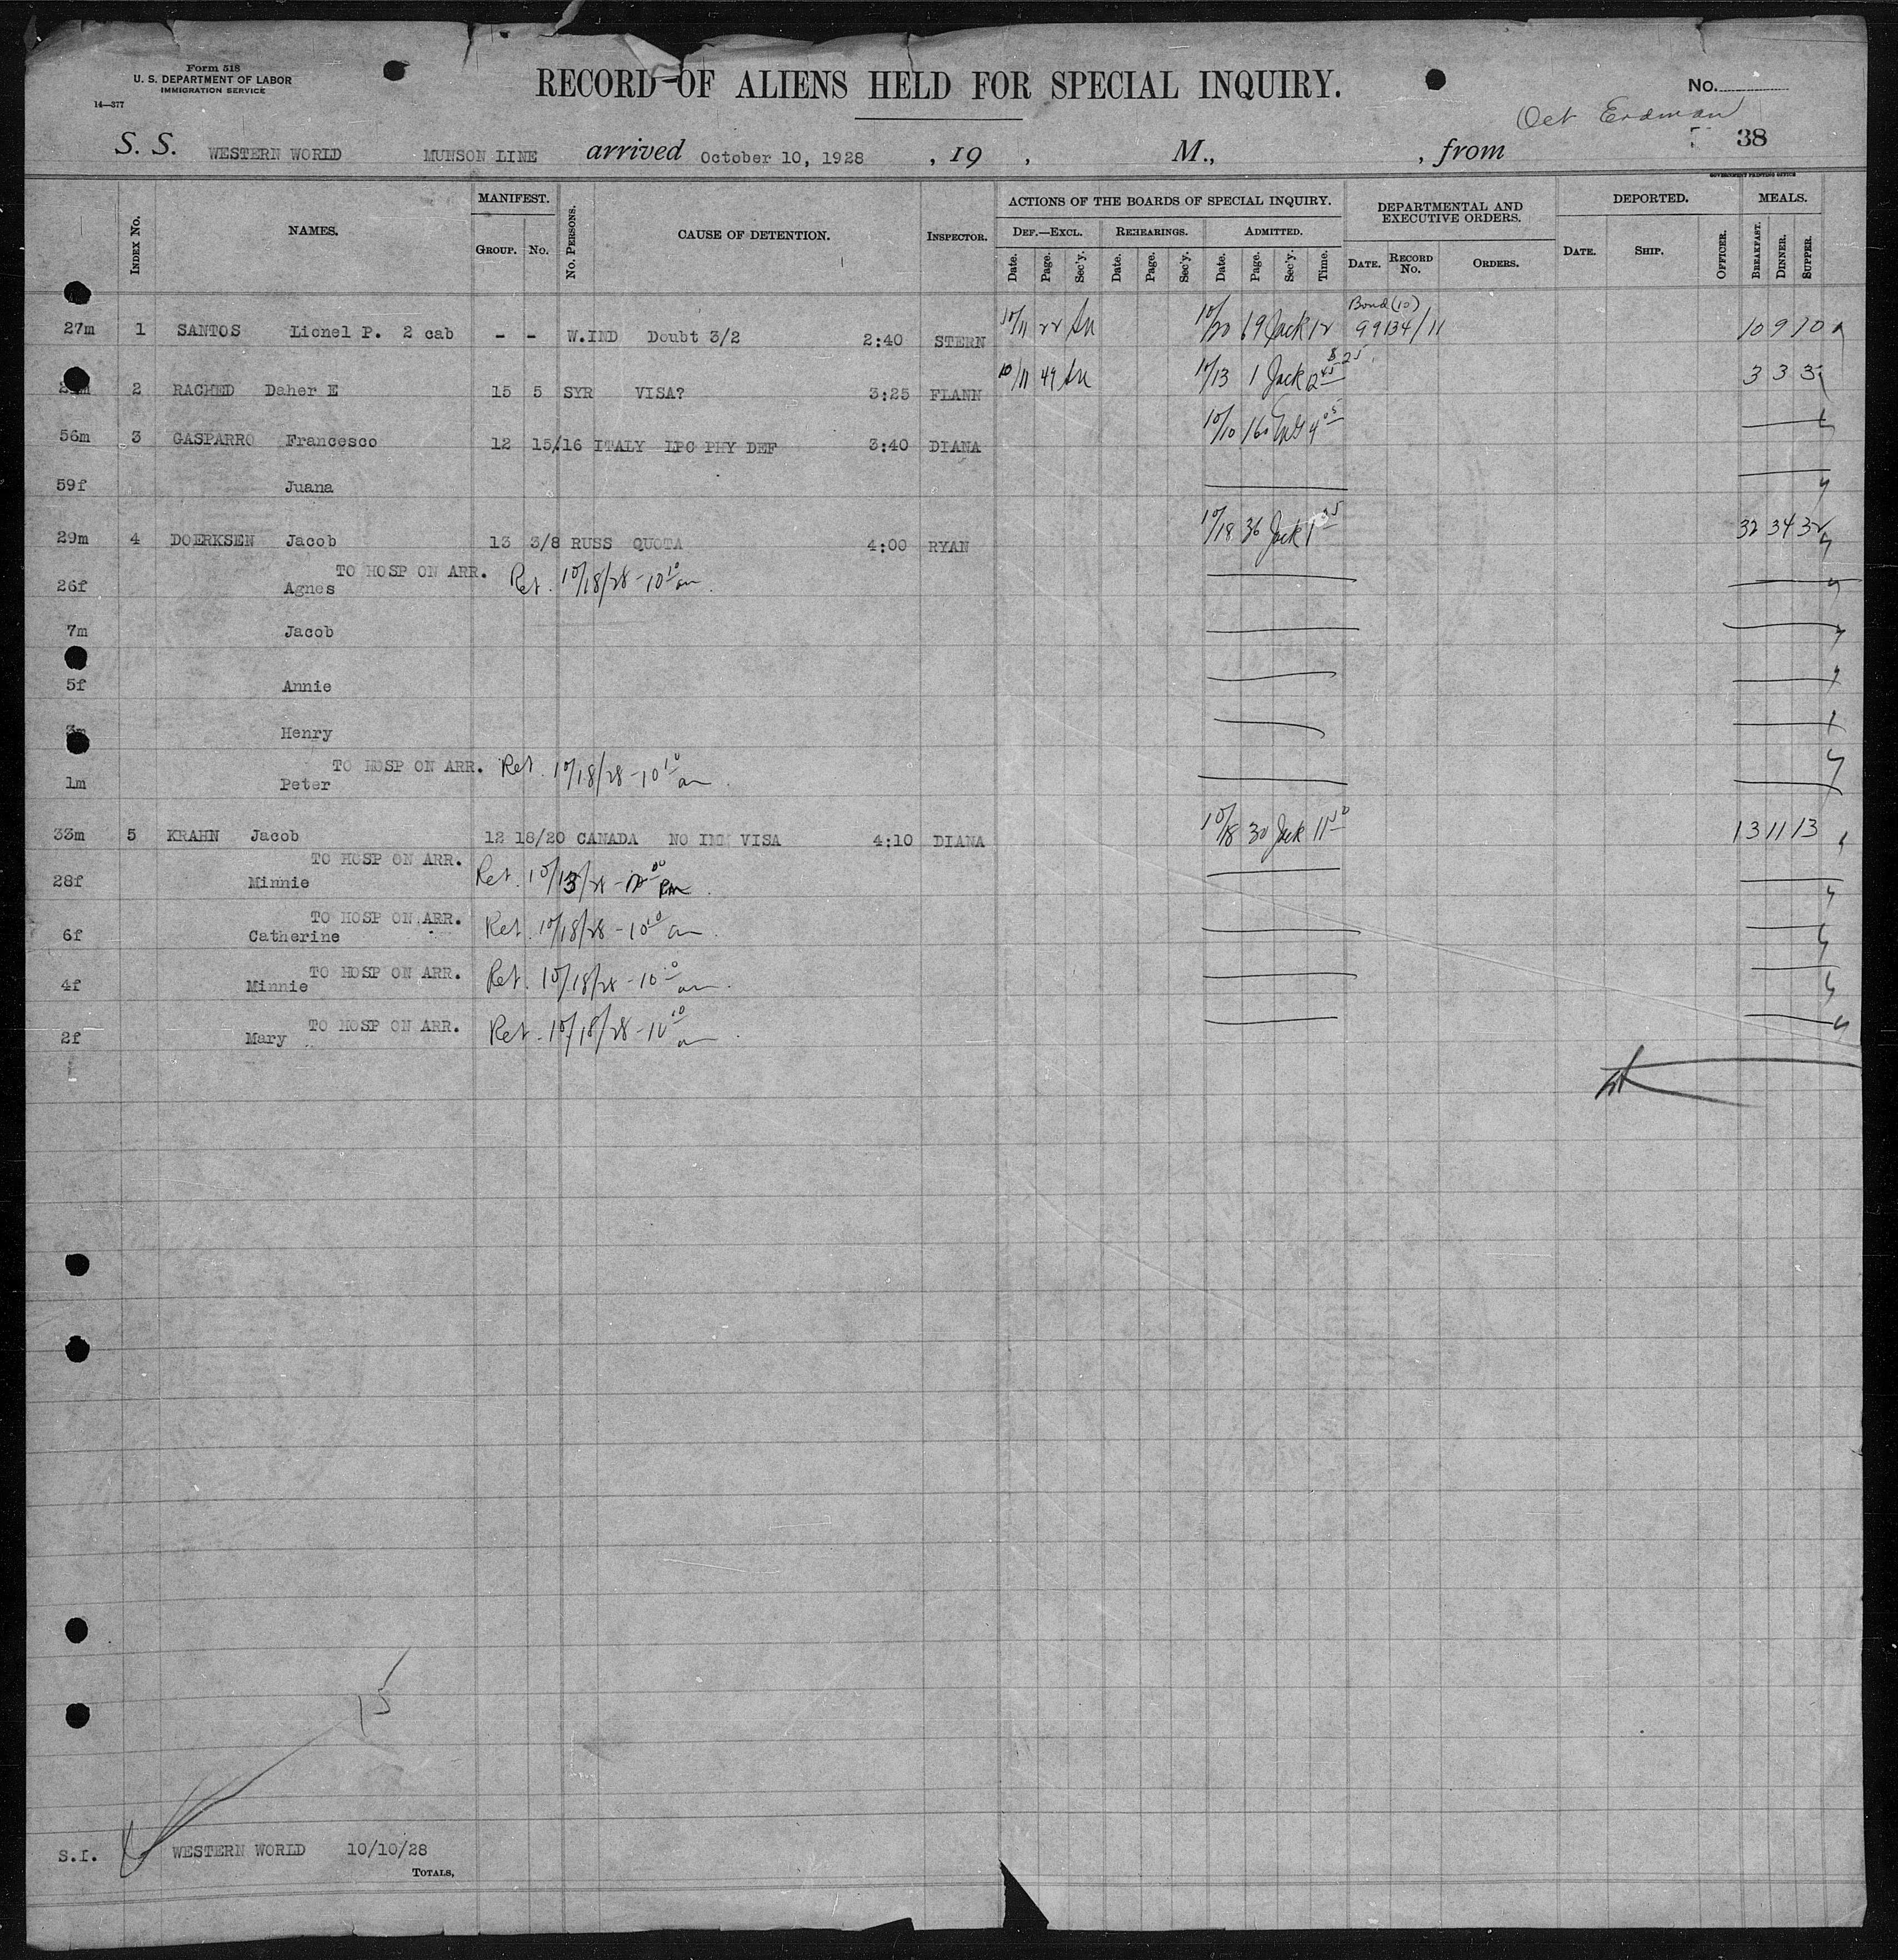 Form 518
U. S. DEPARTMENT OF LABOR
IMMIGRATION SERVICE
14—377
RECORD OF ALIENS HELD FOR SPECIAL INQUIRY.
No.
Oct Erdman
38
S. S. WESTERN WORLD MUNSON LINE arrived October 10, 1928 , 19 , M., , from
GOVERNMENT PRINTING OFFICE
INDEX No. NAMES. MANIFEST. GROUP. No. No. PERSONS. CAUSE OF DETENTION. INSPECTOR. ACTIONS OF THE BOARDS OF SPECIAL INQUIRY. DEPARTMENTAL AND EXECUTIVE ORDERS. DEPORTED. MEALS.
DEF.—EXCL. REHEARINGS. ADMITTED.
Date. Page. Sec'y. Date. Page. Sec'y. Date. Page. Sec'y. Time. DATE. RECORD No. ORDERS. DATE. SHIP. OFFICER. BREAKFAST. DINNER. SUPPER.
Bond (10)
27m 1 SANTOS Lionel P. 2 cab - - W.IND Doubt 3/2 2:40 STERN 10/11 22 10/20 69 Jack 12 99134/11 10 9 10
2 RACHED Daher E 15 5 SYR VISA? 3:25 FLANN 10/11 49 10/13 1 Jack 12 45 3 3 3
56m 3 GASPARRO Francesco 12 15/16 ITALY LPC PHY DEF 3:40 DIANA 10/10 160 4 05
59f Juana
29m 4 DOERKSEN Jacob 13 3/8 RUSS QUOTA 4:00 RYAN 10/18 36 Jack 1 32 34 32
TO HOSP ON ARR. Ret. 10/18/28 - 10 10 am
26f Agnes
7m Jacob
5f Annie
3m Henry
TO HOSP ON ARR. Ret. 10/18/28 - 10 10 am
1m Peter
33m 5 KRAHN Jacob 12 18/20 CANADA NO IMM VISA 4:10 DIANA 10/18 30 Jack 11 13 11 13
TO HOSP ON ARR.
28f Minnie Ret. 10/13/28
TO HOSP ON ARR.
6f Catherine Ret. 10/18/28 - 10 10 am
TO HOSP ON ARR.
4f Minnie Ret. 10/18/28 - 10 10 am
TO HOSP ON ARR.
2f Mary Ret. 10/18/28 - 10 10 am
15
S.I. WESTERN WORLD 10/10/28
TOTALS,